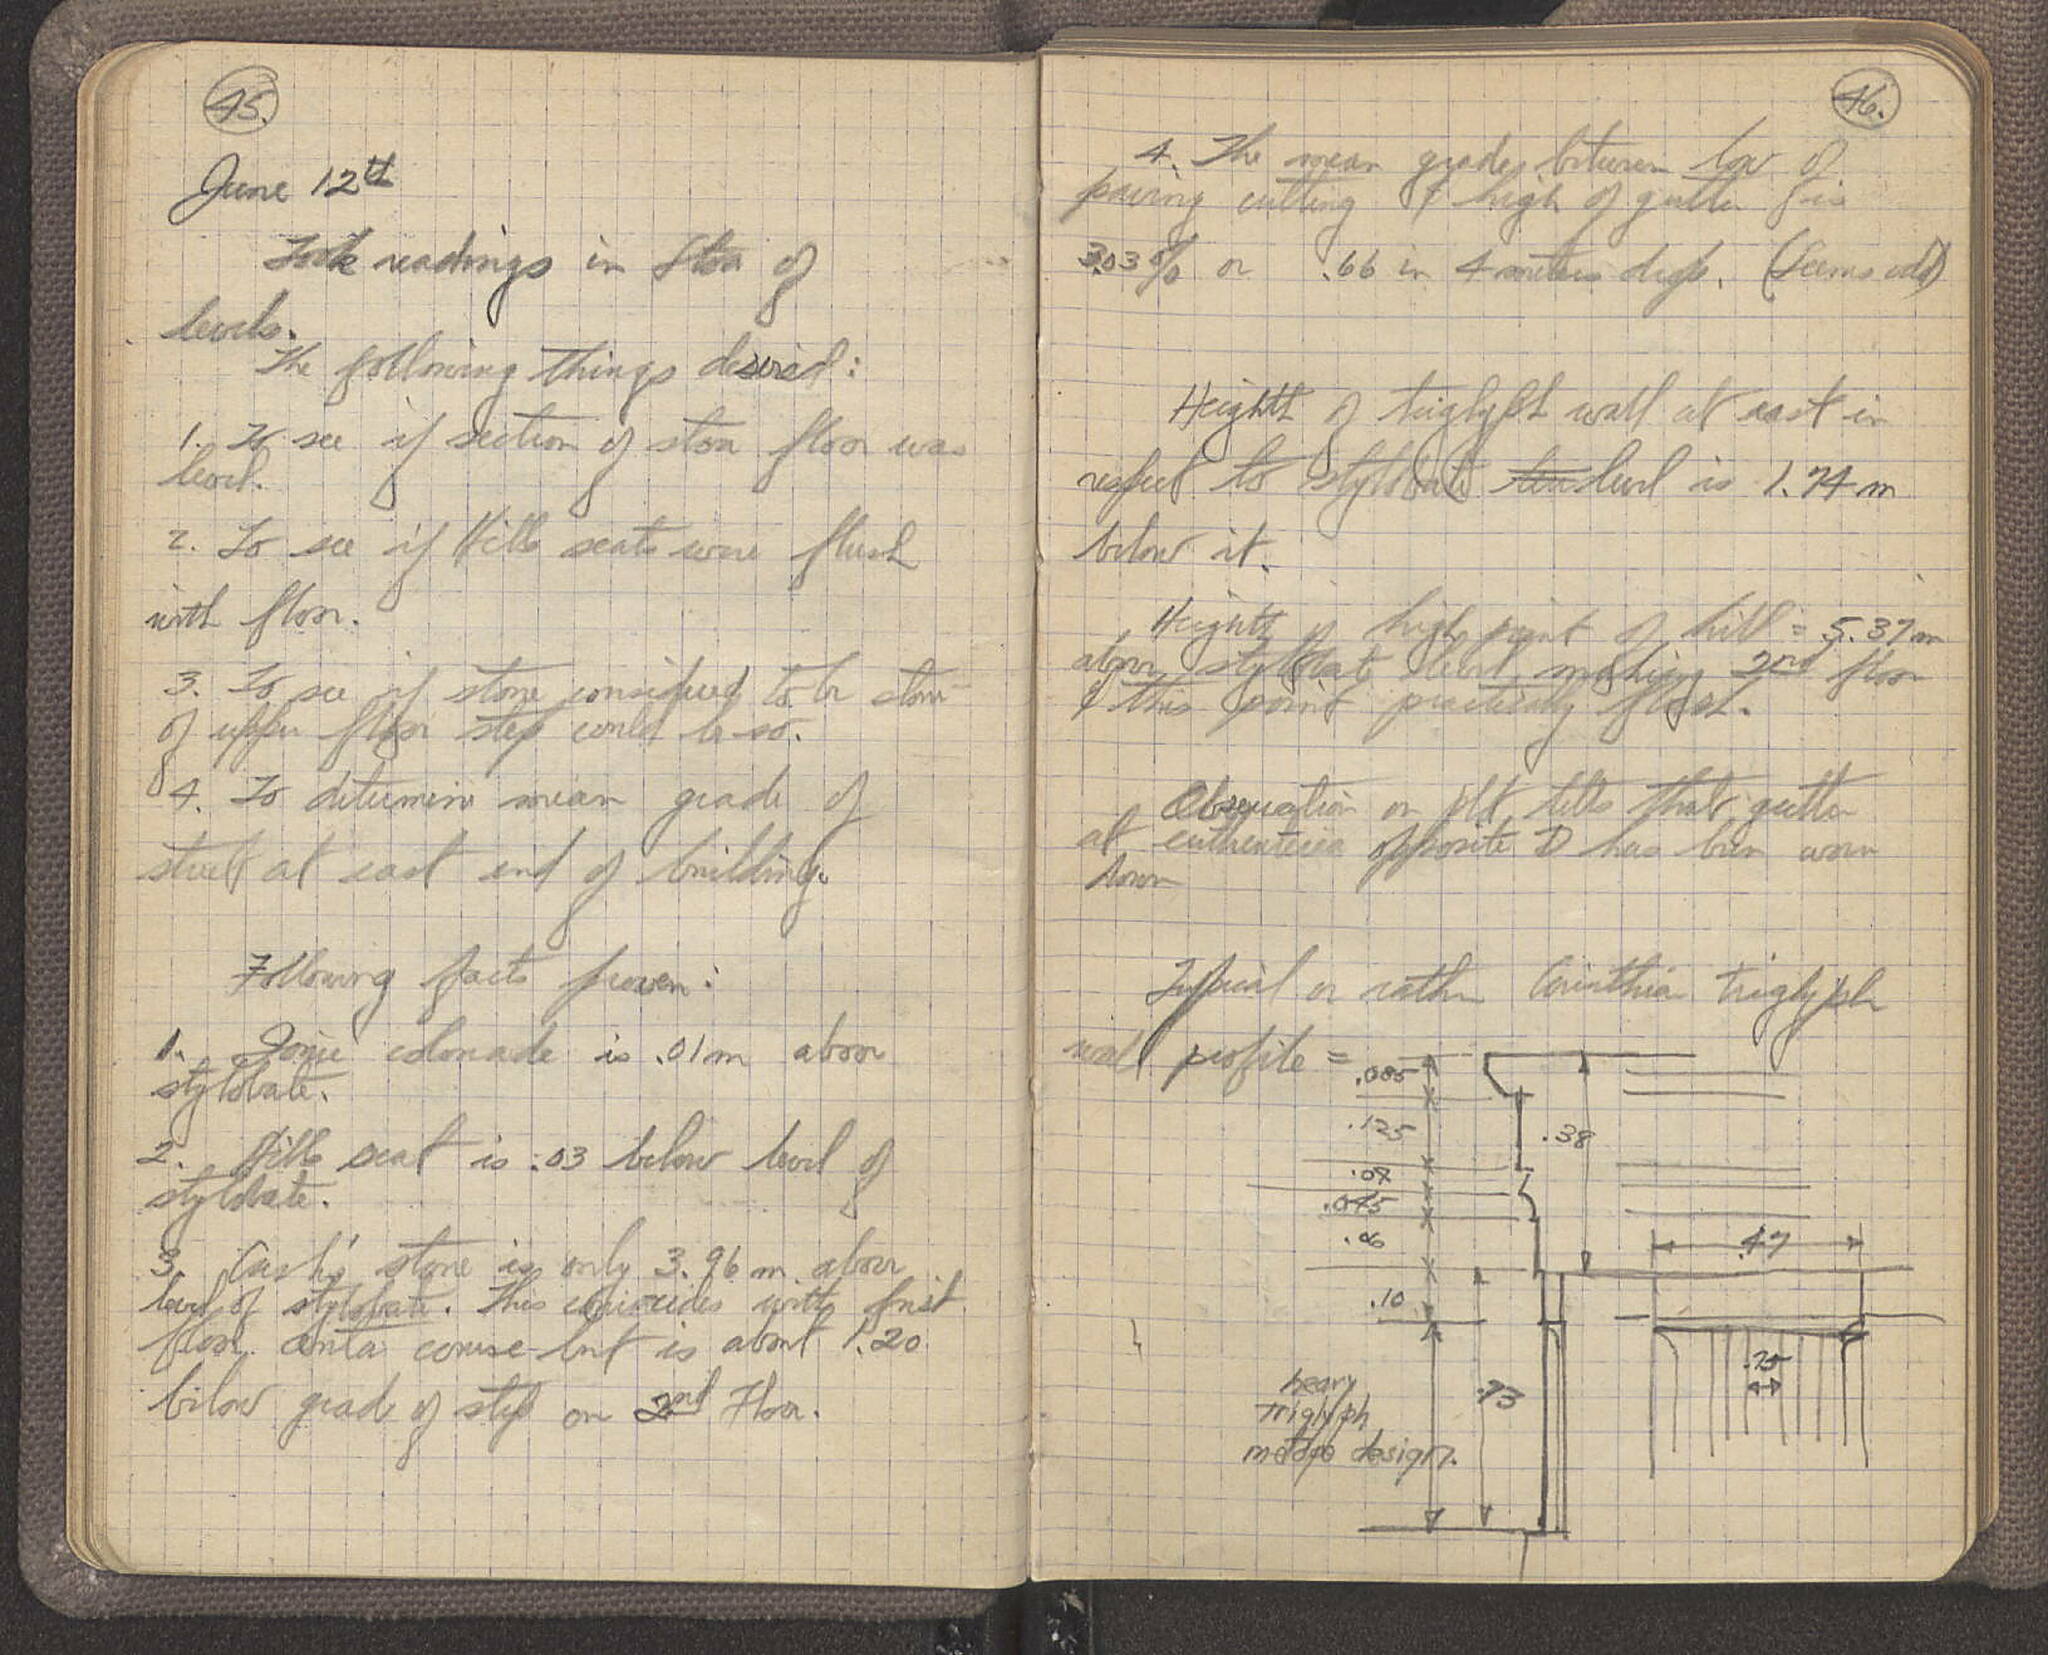 45.
June 12th
Took readings in Stoa of
levels.
The following things desired:
1. To see if section of stoa floor was
level.
2. To see if Hill's seats were flush
with floor.
3. To see if stone considered to be stone
of upper floor step could be so.
4. To determine mean grade of
street at east end of building.
Following facts proven:
1. Ionic colonade is .01m above
stylobate.
2. Hill's seat is .03 below level of
stylobate.
3. Cash's stone is only 3.96 m above
level of stylobate. This coincides with first
floor anta course but is about 1.20
below grade of step on 2nd Floor.
46.
4. The mean grade between low of
paving cutting & high of gutter is
3.03% or .66 in 4 meters drop. (Seems odd)
Heighth of triglyph wall at east in
respect to stylobate level is 1.74 m
below it.
Heighth of high point of hill = 5.37m
above stylobate level making 2nd floor
& this point practically flush.
Observation on plt tells that gutter
at opposite D has been worn
down
Typical or rather Corinthian triglyph
wall profile =
.085
.125
.38
.07
.045
.06
.47
.10
.15
.73
heavy
triglyph
metope design.